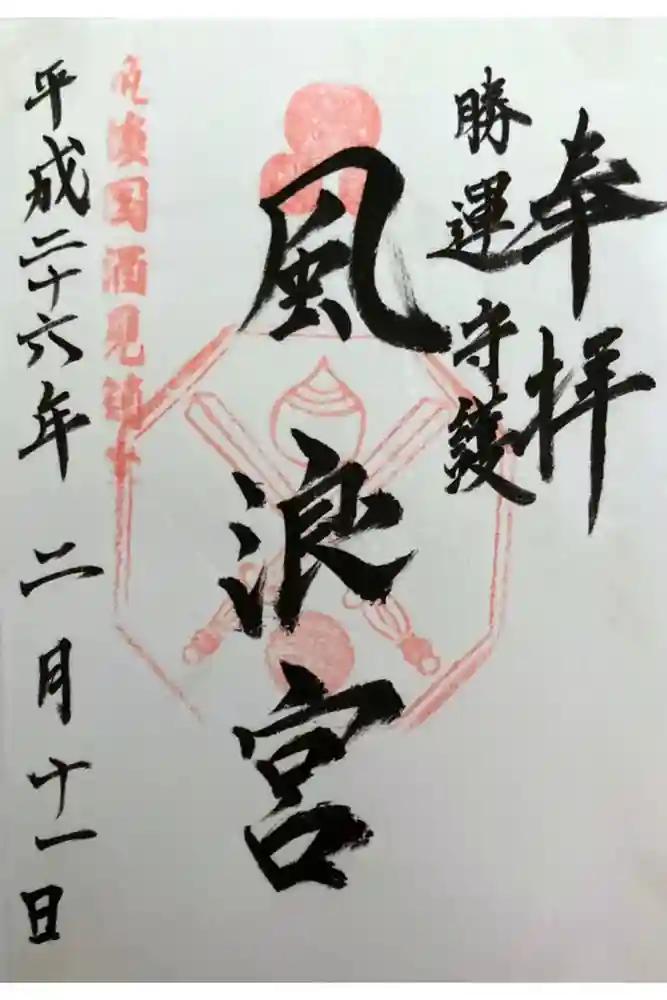 奉拝
勝運守護
風浪宮
国酒見
平成二十六年 二月十一日